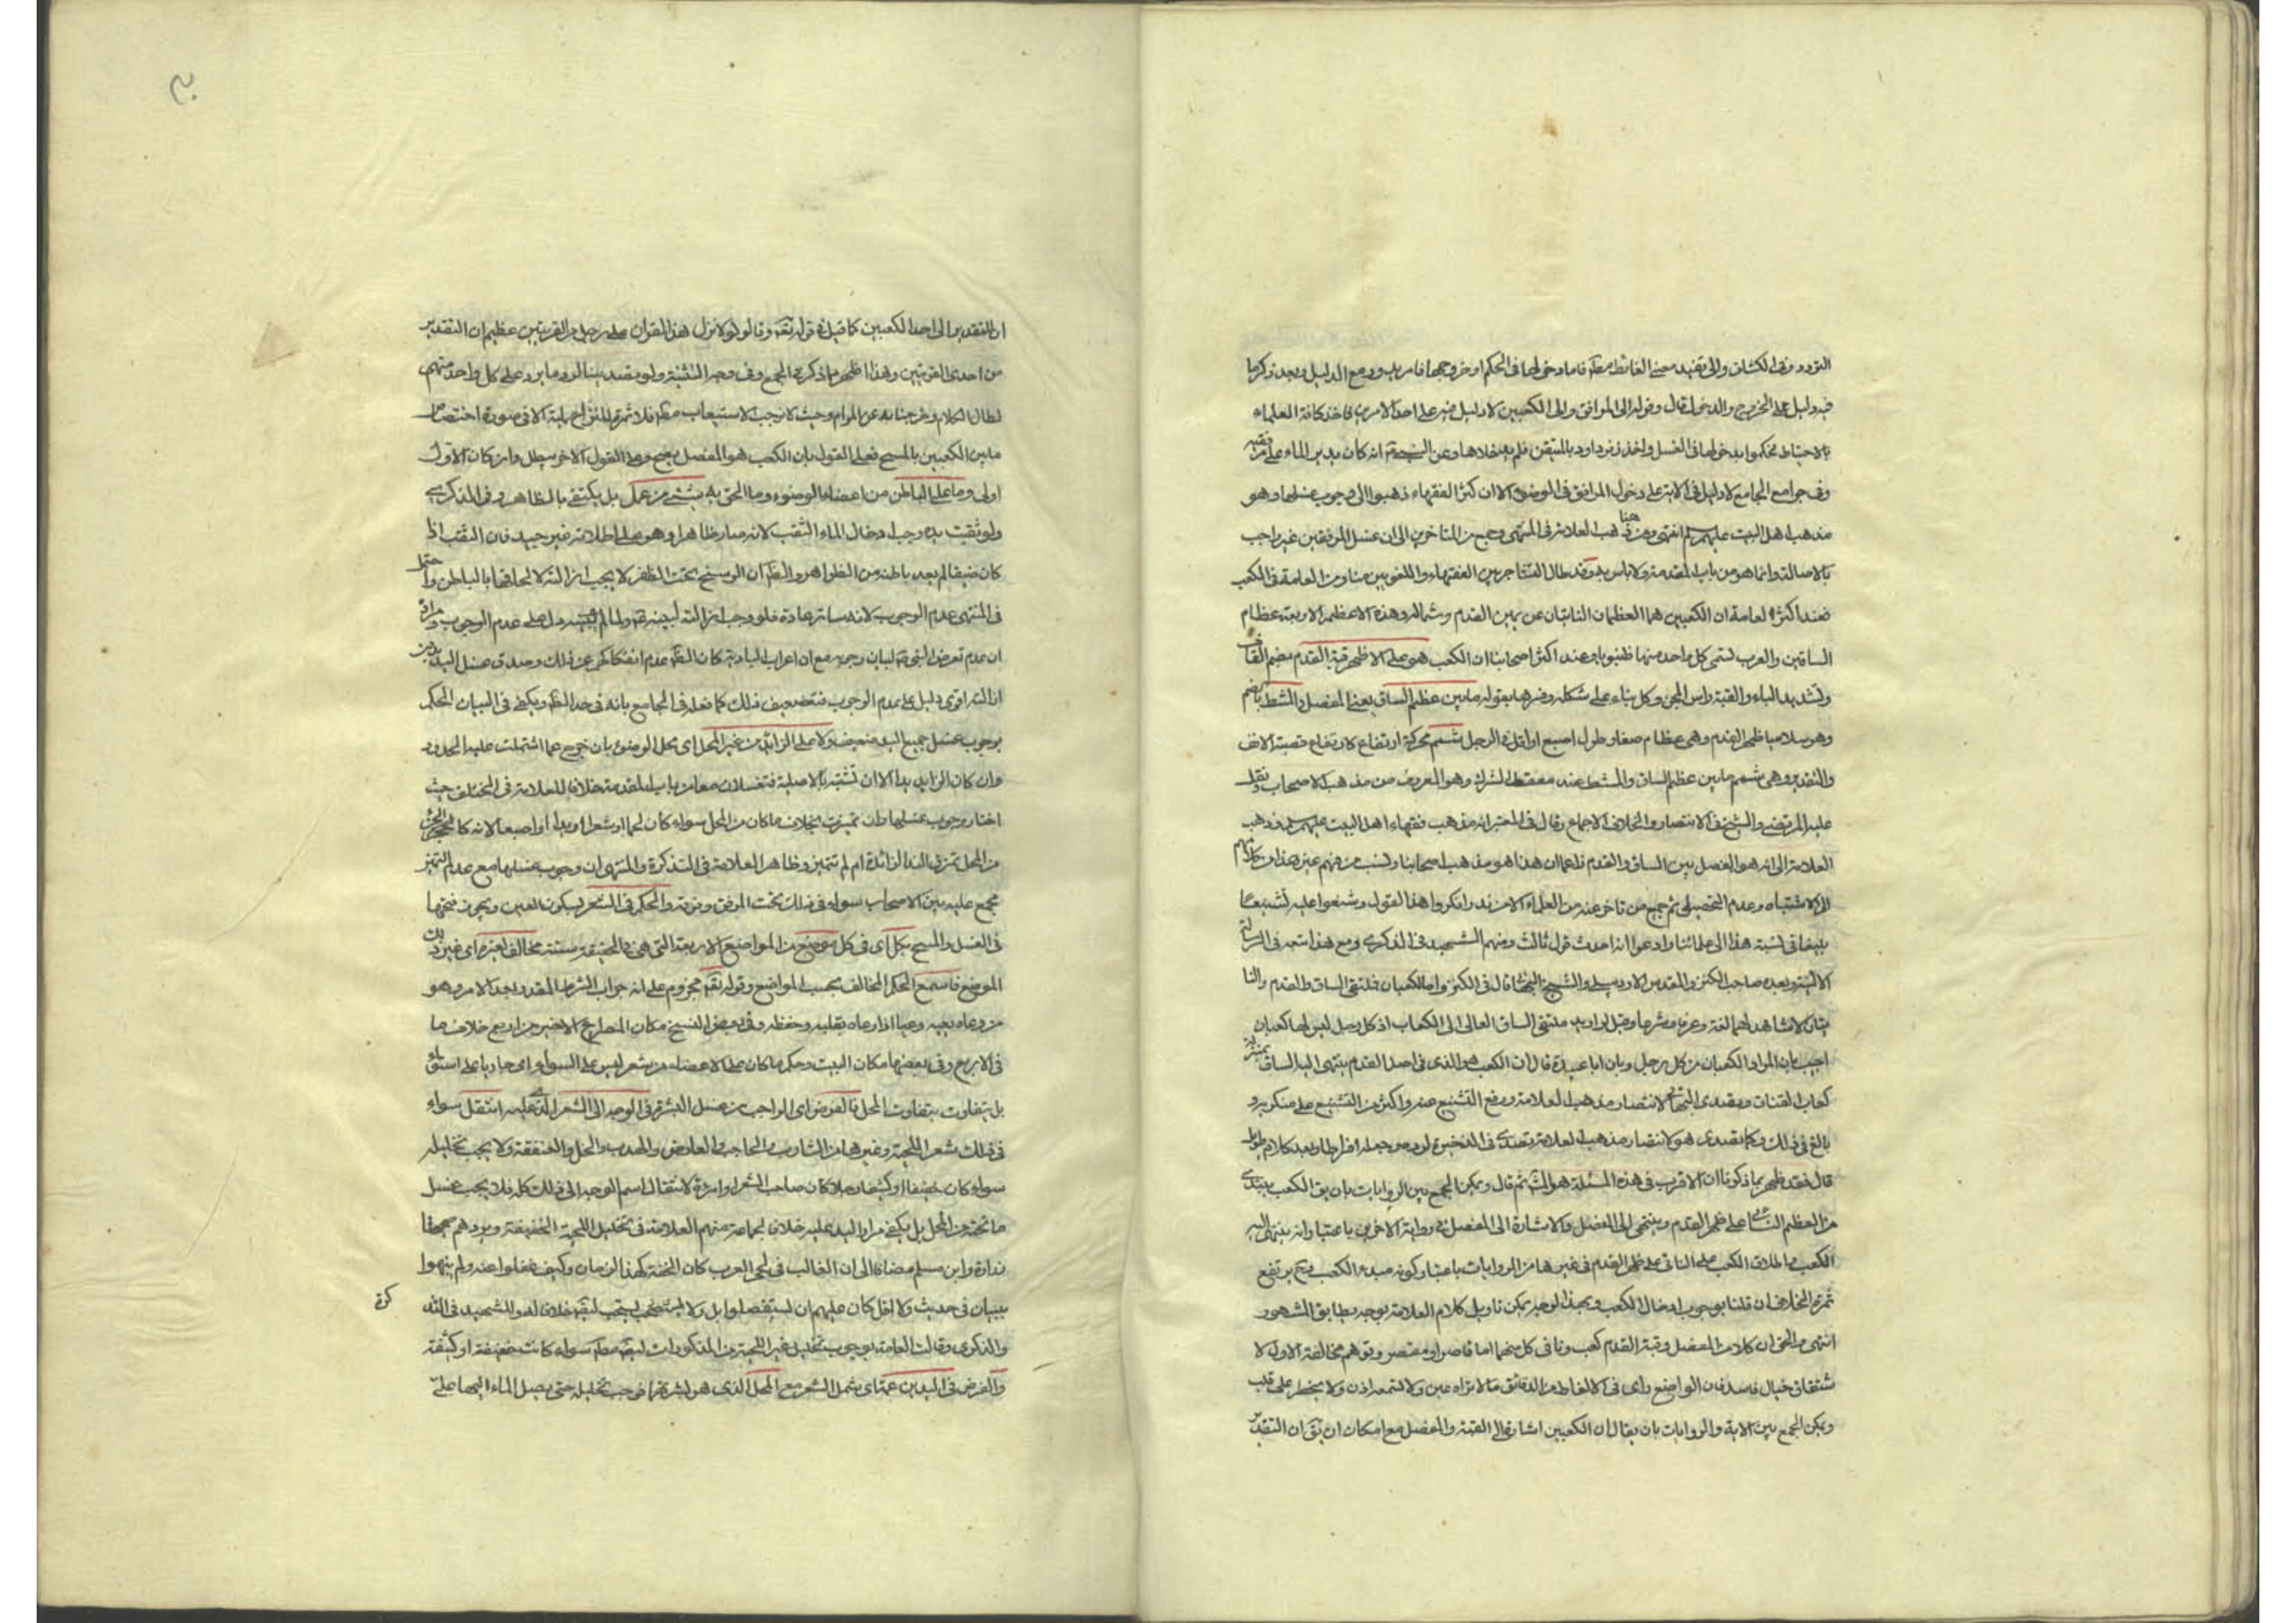 التردد وفى الكشاف والى تفيد معنى الغاية مطلقا فاما دخولها فى الحكم او خروجها فامر يدور مع الدليل وبعد ذكر ما
فيه دليل على الخروج والدخول قال وقوله الى المرافق والى الكعبين لا دليل فيه على احد الامرين فاخذ كافة العلماء
بالاحتياط فحكموا بدخولها فى الغسل واخذ زفر وداود بالمتيقن فلم يدخلاها وعن النبى انه كان يدير الماء على مرفقيه
وفى جوامع الجامع لا دليل فى الاية على دخول المرافق فى الوضوء الا ان اكثر الفقهاء ذهبوا الى وجوب غسلها وهو
مذهب اهل البيت عليهم انتهى ومن هنا ذهب العلامة فى المنتهى وجمع من المتاخرين الى ان غسل المرفقين غير واجب
بالاصالة وانما هو من باب المقدمة ولا باس به وقد طال التشاجر بين الفقهاء واللغويين منا ومن العامة فى الكعب
فعند اكثر العامة ان الكعبين هما العظمان الناتيان عن يمين القدم وشماله وهذه الاعظم الاربعة عظام
الساقين والعرب تسمى كل واحد منها ظنبوبا وعند اكثر اصحابنا ان الكعب هو على الاظهر قبة القدم بضم القاف
وتشديد الباء والقبة راس المحن وكل بناء على شكله وفسرها بقوله ما بين عظم الساق يعنى المفصل والمشط بالضم
وهو سلاميا ظهر القدم وهى عظام صغار طول اصبع او اقل فى الرجل شمم محركة ارتفاع كارتفاع قصبة الانف
والتقدير وهى شمم ما بين عظم الساق والمشط عند معقط الشرك وهو المعروف من مذهب الاصحاب ونقل
عليه المرتضى والشيخ فى الانتصار والخلاف الاجماع وقال فى المعتبر انه مذهب فقهاء اهل البيت عليهم وذهب
العلامة الى انه هو المفصل بين الساق والقدم زاعما ان هذا هو مذهب اصحابنا ونسب من فهم غير هذا من كلامهم
الى الاشتباه وعدم التحصيل ثم جميع من تاخر عنه من العلماء الا من ندر انكروا هذا القول وشنعوا عليه تشنيعا
بليغا فى نسبة هذا الى علمائنا وادعوا انه احدث قول ثالث ومنهم الشهيد فى الذكرى ومع هذا تبعه فى الرسالة
الالفية وبعده صاحب الكنز والمقدس الاردبيلى والشيخ البهائى قال فى الكنز واما الكعبان فملتقى الساق والقدم والنا
تيان لا شاهد لهما لغة وعرفا وشرعا وقيل لو اريد ملتقى الساق لقال الى الكعاب اذ كل رجل ليس لها كعبان
اجيب بان المراد الكعبان من كل رجل وبان ابا عبيدة قال ان الكعب هو الذى فى اصل القدم ينتهى اليه الساق بمنزلة
كعاب القنات وتصدى البهائى لانتصار مذهب العلامة ورفع التشنيع عنه واكثر من التشنيع على منكريه و
بالغ فى ذلك وكما تصدى هو لانتصار مذهب العلامة تصدى فى الذخيرة لرده وجعله افراطا وبعد كلام طويل
قال فقد ظهر بما ذكرنا ان الاقرب فى هذه المسئلة هو ثم قال ويمكن الجمع بين الروايات بان يق الكعب يبتدى
من العظم الناتى على ظهر القدم وينتهى الى المفصل والاشارة الى المفصل فى رواية الاخوين باعتبار انه ينتهى اليه
الكعب واطلاق الكعب على الناتى على ظهر القدم فى غيرها من الروايات باعتبار كونه مبدء الكعب وح يرتفع
ثمرة الخلاف ان قلنا بوجوب ادخال الكعب وبهذا الوجه يمكن تاويل كلام العلامة بوجه يطابق المشهور
انتهى والحق ان كلا من المفصل وقبة القدم كعب ونافى كل منهما اما قاصر او مقصر وتوهم مخالفة الاول لا
شتقاق خيال فاسد فان الواضع راى فى الالفاظ من الدقائق ما لا تراه عين ولا تسمعه اذن ولا يخطر على قلب
ويمكن الجمع بين الاية والروايات بان يقال ان الكعبين اشارة الى القبة والمفصل مع امكان ان يق ان التقدير
ان التقدير الى احد الكعبين كما قيل فى قوله تعالى وقالوا لولا نزل هذا القران على رجل من القريتين عظيم ان التقدير
من احدى القريتين وهذا اظهر ما ذكر فى الجمع وفى وجه التثنية ولو قصدنا ايراد ما يرد على كل واحد منهم
لطال الكلام وخرجنا به عن المرام وحيث لا نوجب الاستيعاب مطلقا فلا ثمرة للنزاع الا فى صورة اختصاص
ما بين الكعبين بالمسح فعلى القول بان الكعب هو المفصل يصح وعلى القول الاخر يبطل وان كان الاول
اولى وما على الباطن من اعضاء الوضوء وما الحق به بشئ من عمل بل يكتفى بالظاهر وفى التذكرة
ولو ثقبت يده وجب ادخال الماء الثقب لانه صار ظاهرا وهو على اطلاقه غير جيد فان الثقب اذا
كان ضيقا لم يعد باطنه من الظواهر والظ ان الوسخ تحت الظفر لا يجب ازالته لالحاقها بالباطن واحتمل
فى المنتهى عدم الوجوب لانه ساتر عادة فلو وجب ازالته لبينه ولما لم يبينه دل على عدم الوجوب
ان عدم تعرض النبى لبيان وجوبه مع ان اعراب البادية كان الظ عدم انفكاكهم عن ذلك وصدق غسل اليد بدون
ازالته اقوى دليل على عدم الوجوب فتضعيف ذلك كما فعله فى الجامع بانه فى حد الظ ويكفى فى البيان الحكم
بوجوب غسل جميع اليد ضعيف ولا على الزائد من غير المحل اى محل الوضوء بان خرج عما اشتملت عليه الحدود
وان كان الزايد يدا الا ان تشتبه بالاصلية فتغسلان معا من باب المقدمة خلافا للعلامة فى المختلف حيث
اختار وجوب غسلها وان تميزت بخلاف ما كان من المحل سواء كان لحما او شعرا او يدا او اصبعا لانه كالجزء
من المحل تميزت اليد الزائدة ام لم تتميز وظاهر العلامة فى التذكرة والمنتهى ان وجوب غسلها مع عدم التميز
مجمع عليه بين الاصحاب سواء فى ذلك تحت المرفق وفوقه والحكم فى الشعر بسكون العين ويجوز فتحها
فى الغسل والمسح بكل اى فى كل موضع من المواضع الاربعة التى هى فى الحقيقة ستة مخالف لغيره اى غير ذلك
الموضع فاسمع الحكم المخالف بحسب المواضع وقوله مجزوم على انه جواب الشرط المقدر بعد الامر وهو
من وعاه يعيه وعيا اذا رعاه بقلبه وحفظه وفى بعض النسخ مكان المصراع الاخير من اربع خلاف ما
فى الاربع وفى بعضها مكان البيت وحكم ما كان على الاعضاء من شعر ليس على السواء اى جاريا على استواء
بل يتفاوت بتفاوت المحل فالفرض اى الواجب من غسل البشرة فى الوجه الى الشعر الذى عليه انتقل سواء
فى ذلك شعر اللحية وغيرها من الشارب والحاجب والعارض والهدب والخد والعنفقة ولا يجب تخليله
سواء كان خفيفا او كثيفا رجلا كان صاحب الشعر او امرءة لانتقال اسم الوجه الى ذلك كله فلا يجب غسل
ما تحته من المحل بل يكفى مرار اليد عليه خلافا لجماعة منهم العلامة فى تخليل اللحية الخفيفة ويردهم صحيحا
زرارة وابن مسلم مضافا الى ان الغالب فى لحى العرب كان الخفة كهذا الزمان وكيف غفلوا عنه ولم ينبهوا
ببيان فى حديث ولا اقل كان عليهم ان يستفصلوا بل ولا يستحب خلافا له وللشهيد فى
والذكرى وقالت العامة بوجوب تخليل غير اللحية من المذكورات سواء كانت خفيفة او كثيفة
والفرض فى اليدين عمنا اى يشمل الشعر مع المحل الذى هو البشرة فوجب تخليله حتى يصل الماء اليها على